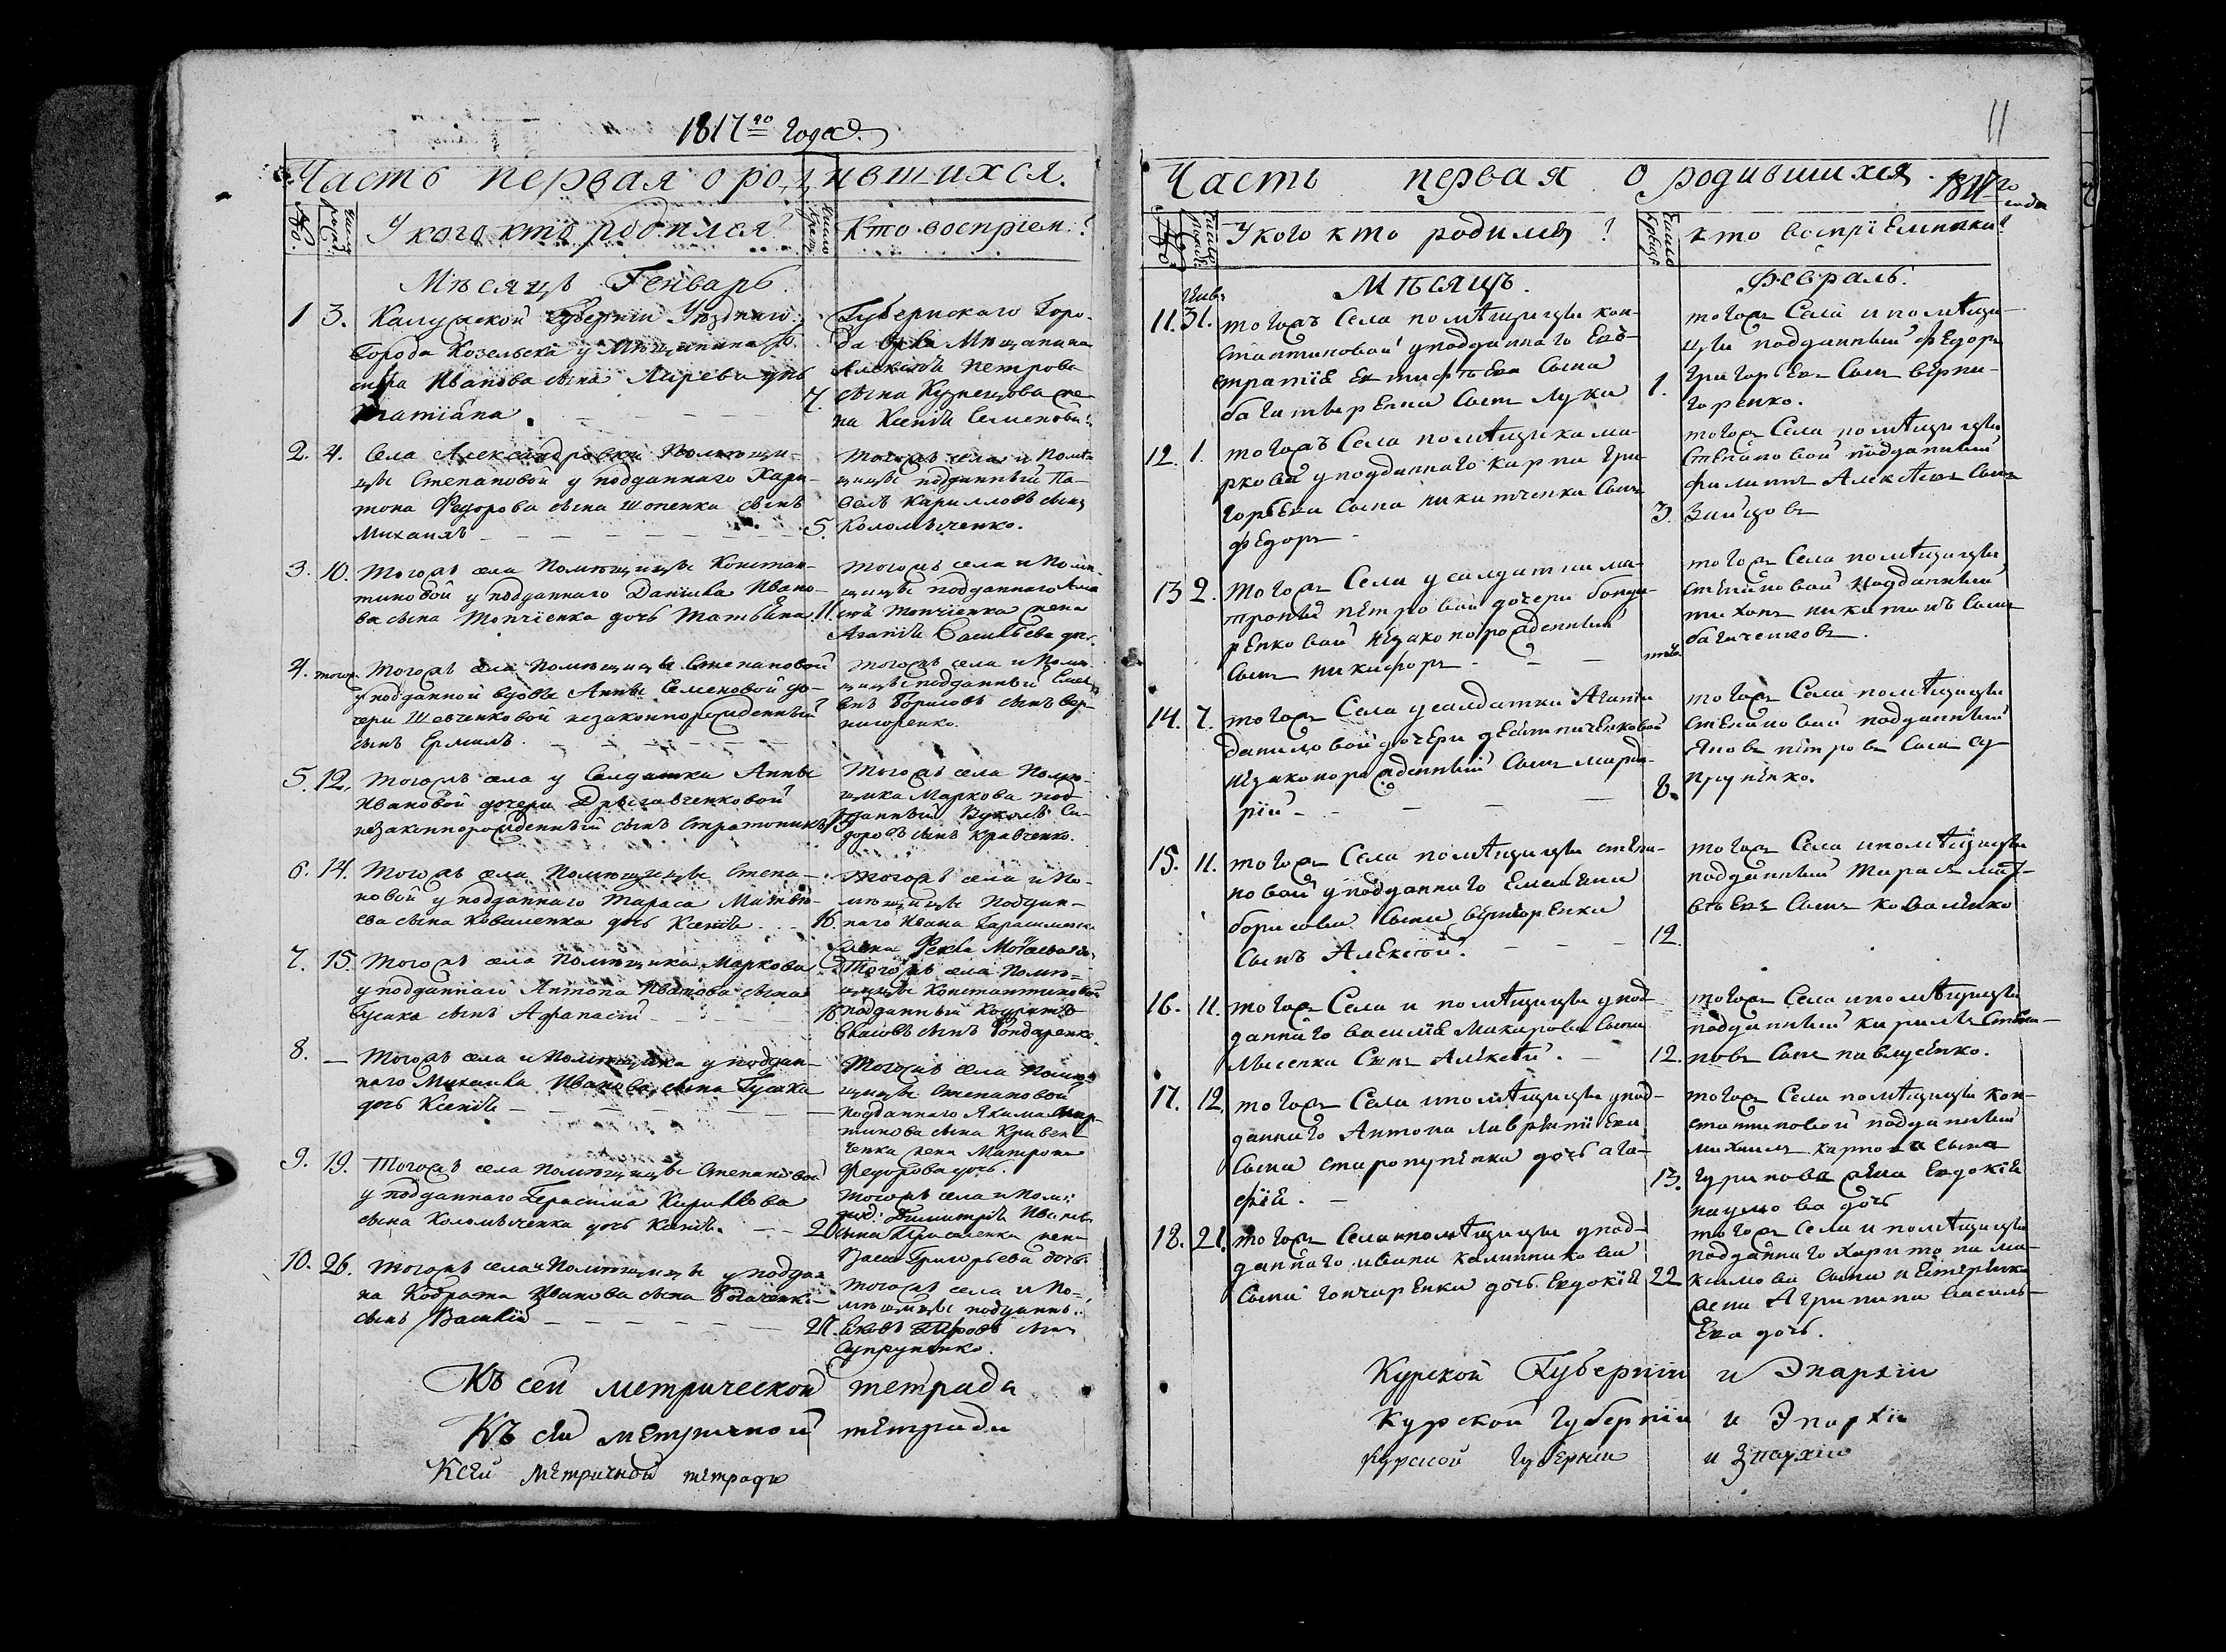 1817го года.
Часть первая о родившихся.
№
число рожд.
У кого кто родился?
число крещ.
Кто воспріем:?
Мѣсяцъ Генварь.
1 3. Калужской Губерніи Уѣзднаго
Города Козельска у Мѣщанина
Иванова сына Ларева дчь
Татіана.
7.
Губернскаго Горо-
да Мѣщанина
Алексѣя Петрова
сына Кузнецова же-
на Ксенія Семенова
2. 4. Села Александровки Помѣщи-
цы Степановой у подданнаго Хари-
тона Федорова сына Шопенка сынъ
Михаилъ
5.
Тогожъ села и Помѣ-
щицы подданный Па-
велъ Кириловъ сынъ
Коломыченко.
3. 10. Тогожъ села Помѣщицы Констан-
тиновой у подданнаго Даніила Ивано-
ва сына Топчіенка дочь Татьяна
11.
Тогожъ села и Помѣ-
щицы подданнаго
Топчіенка жена
Агапія Василіева дч.
4. тогож. Тогожъ села Помѣщицы Степановой
у подданной вдовы Анны Семеновой до-
чери Шевченковой незаконнорожденный
сынъ Ермилъ.
Тогожъ села и Помѣ-
щицы подданный Емел-
янъ Борисовъ сынъ Вер-
нигоренко.
5. 12. Тогожъ села у Солдатки Анны
Ивановой дочери Дрыгавченковой
незаконнорожденный сынъ Стратоникъ
Тогожъ села Помѣ-
щика Маркова под-
данный Вуколъ Си-
доровъ сынъ Кравченко.
6. 14. Тогожъ села Помѣщицы Степа-
новой у подданнаго Тараса Матвѣ-
ева сына Коваленка дочь Ксенія.
16.
Тогожъ села и По-
мѣщицы Поддан-
наго Ивана Гарашченка
жена Фекла Моѵсеева до.
7. 15. Тогожъ села Помѣщика Маркова
у подданнаго Антона Иванова сына
Гусака сынъ Афанасій
16
Тогожъ села Помѣ-
щицы Константиновой
подданный Кодратъ
Власовъ сынъ Бондаренко.
8. — Тогожъ села и Помѣщика у поддан-
наго Михаила Иванова сына Гусака
дочь Ксенія
Тогожъ села Помѣ-
щицы Степановой
подданнаго Якима Мар-
тинова сына Кривен-
ченка жена Матрона
Федорова дочь.
9. 19. Тогожъ села Помѣщицы Степановой
у подданнаго Герасима Кириллова
сына Коломыченка дочь Ксенія.
20
Тогожъ села и Помѣ:
под: Димитрія Иванова
сына жена
Григорьева дочь.
10. 26. Тогожъ села и Помѣщицы у подда
на Кодрата Иванова сына Богаченк-
сынъ Василій
27.
Тогожъ села и По-
мѣщицы поддан.
Яковъ Петровъ сынъ
Супруненко.
Къ сей метрической тетради
Къ сей метричной тетради
Ксей метричной тетради
11
Часть первая о родившихся. 1817го года
№
число рожд.
У кого кто родился?
число крещ.
кто воспріемники?
Мѣсяцъ. Февраль.
Генв:
11. 31. тогожъ Села помѣщицы кон-
стантиновой у подданнаго Евъ-
стратіе Евтифѣева Сына
багатыренка Сынъ Лука
1.
тогожъ Села и помѣщи-
цы подданный Федоръ
Григорьевъ Сынъ верни-
горенко.
12. 1. тогожъ Села помѣщика ма-
ркова у подданнаго карпа Гри-
горьева Сына никитченка Сынъ
федоръ
3.
тогожъ Села помѣщицы
Степановой подданный
филипъ Алексѣевъ Сынъ
Зайцовъ
13 2. тогожъ Села у салдатки ма-
троны петровой дочери бонда-
ренковой незаконорожденный
Сынъ никифоръ
тогожъ Села помѣщицы
степановой подданный
тихонъ никитинъ Сынъ
багаченковъ.
14. 7. тогожъ Села у салдатки Агапи
даниловой дочери десятниченковой
незаконорожденный Сынъ марда-
рій
8.
тогожъ Села помѣщицы
степановой подданный
Яковъ петровъ Сынъ су-
пруненко.
15. 11. тогожъ Села помѣщицы степа-
новой у подданнаго Емелеяна
борисова Сына вернигоренка
Сынъ Алексѣй.
12.
тогожъ Села и помѣщицы
подданный Тарасъ мат-
вѣевъ Сынъ коваленко
16. 11. тогожъ Села и помѣщицы у под-
даннаго василіе Макарова Сына
Лысенка Сынъ Алексѣй.
12.
тогожъ Села и помѣщицы
подданный кирилъ Степа-
новъ Сынъ павлусенко.
17. 12. тогожъ Села и помѣщицы у под-
даннаго Антона лаврентіева
Сына старопупенка дочь ага-
фіе.
13.
тогожъ Села помѣщицы кон-
стантиновой подданный
михаилъ карпова Сына
чуринова жена Евдокіе
наумова дочь
18. 21. тогожъ Села и помѣщицы у под-
даннаго ивана калинникова
Сына гончаренка дочь Евдокіе
22
тогожъ Села и помѣщицы
подданнаго харитона ма-
ксимова Сына нестеренка
жена Агрипина василь-
ева дочь.
Курской Губерніи и Эпархіи
Курской Губерніи и Эпархіи
Курской Губерніи и Эпархіи